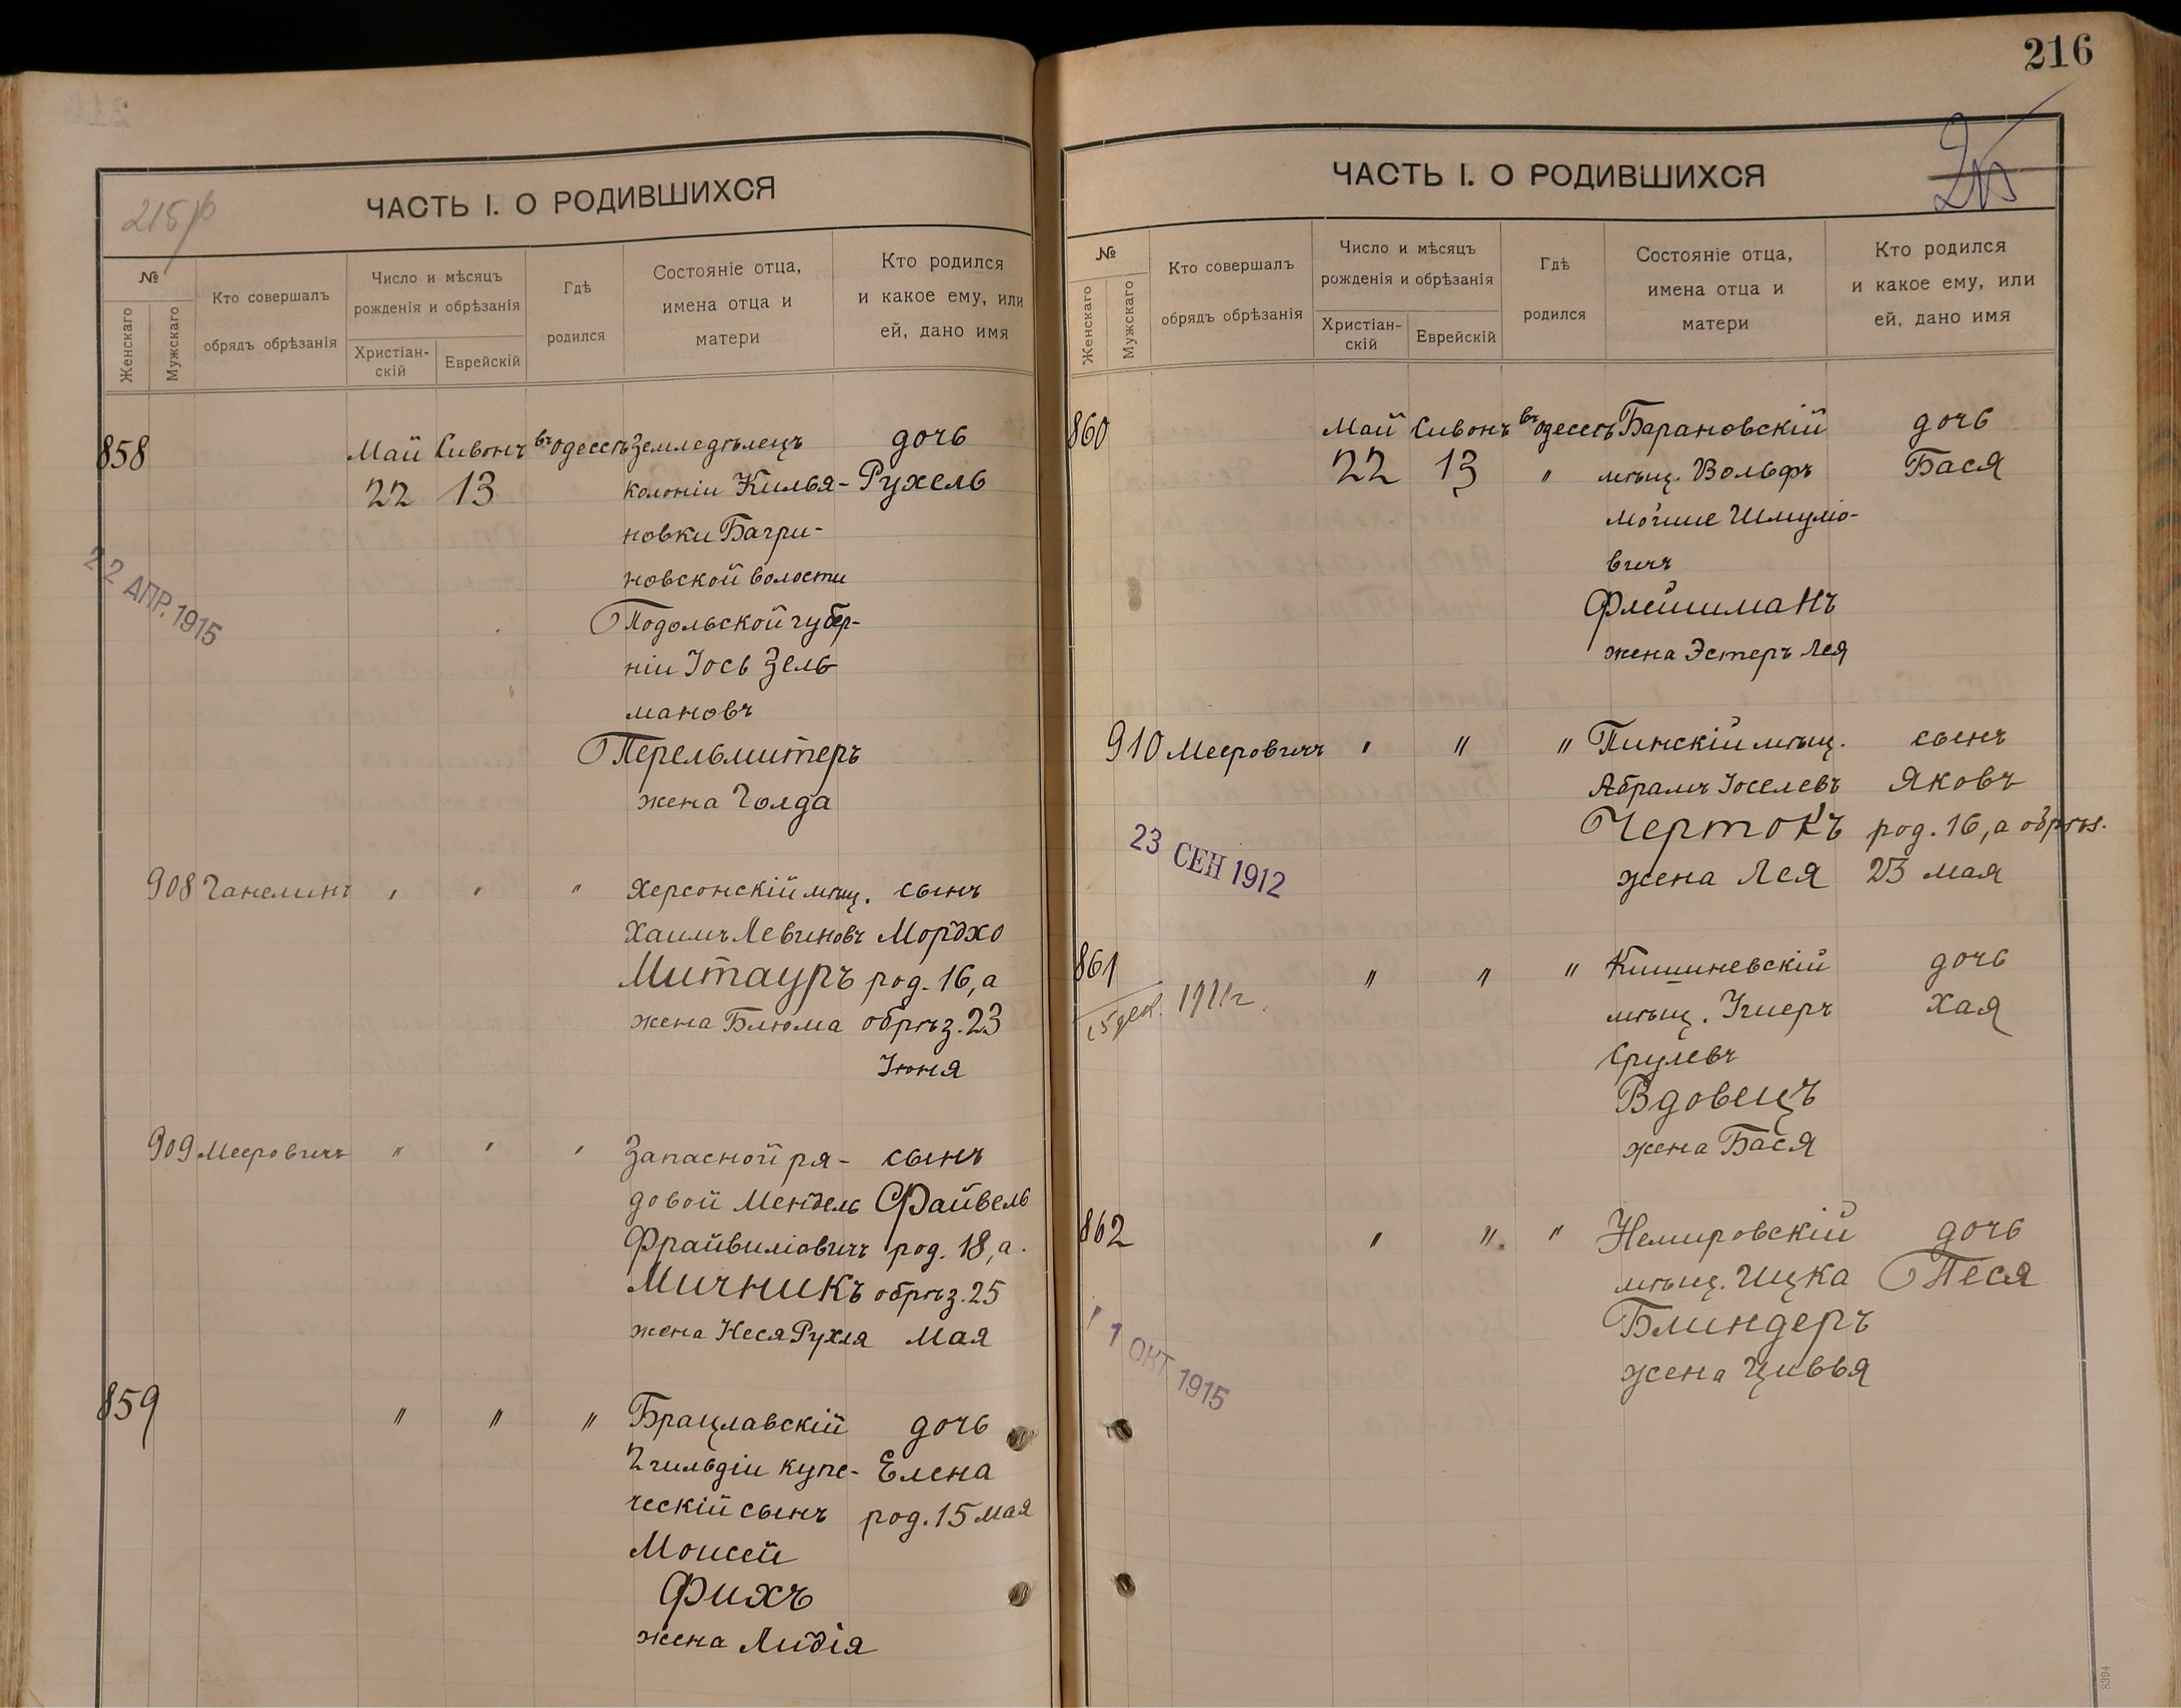 216
ЧАСТЬ I. О РОДИВШИХСЯ
№
Женскаго
Мужскаго
Кто совершалъ
обрядъ обрѣзанія
Число и мѣсяцъ
рожденія и обрѣзанія
Христіан-
скій
Еврейскій
Гдѣ
родился
Состояніе отца,
имена отца и
матери
Кто родился
и какое ему, или
ей, дано имя
858 Май Сивонъ въ Одессѣ Земледѣлецъ дочь
22 13 колоніи Килья- Рухель
новки Багри-
новской волости
22 АПР. 1915
Подольской губер-
ніи Іось Зель
мановъ
Перельмитеръ
жена Голда
908 Ганелинъ " " " Херсонскій мѣщ. сынъ
Хаимъ Левиновъ Мордхо
Митауръ род. 16, а
жена Блюма обрѣз. 23
Іюня
909 Мееровичъ " " " Запасной ря- сынъ
довой Мендель Файвель
Фрайвиліовичъ род. 18, а
Мичникъ обрѣз. 25
жена Неся Рухля Мая
859 " " " Брацлавскій дочь
2 гильдіи купе- Елена
ческій сынъ род. 15 мая
Моисей
Фихъ
жена Лидія
ЧАСТЬ I. О РОДИВШИХСЯ
№
Женскаго
Мужскаго
Кто совершалъ
обрядъ обрѣзанія
Число и мѣсяцъ
рожденія и обрѣзанія
Христіан-
скій
Еврейскій
Гдѣ
родился
Состояніе отца,
имена отца и
матери
Кто родился
и какое ему, или
ей, дано имя
860 Май Сивонъ въ Одессѣ Барановскій дочь
22 13 " мѣщ. Вольфъ Бася
Мошше Шмуліо-
вичъ
Флейшманъ
жена Эстеръ Лея
910 Мееровичъ " " " Пинскій мѣщ. сынъ
Абрамъ Іоселевъ Яковъ
Чертокъ род. 16, а обрѣз.
23 СЕН 1912
жена Лея 23 мая
861 " " " Кишиневскій дочь
15 дек. 1911 г.
мѣщ. Ушеръ Хая
Срулевъ
Вдовецъ
жена Бася
862 " " " Немировскій дочь
мѣщ. Ицка Песя
Блиндеръ
1 ОКТ 1915
жена Цивья
8394